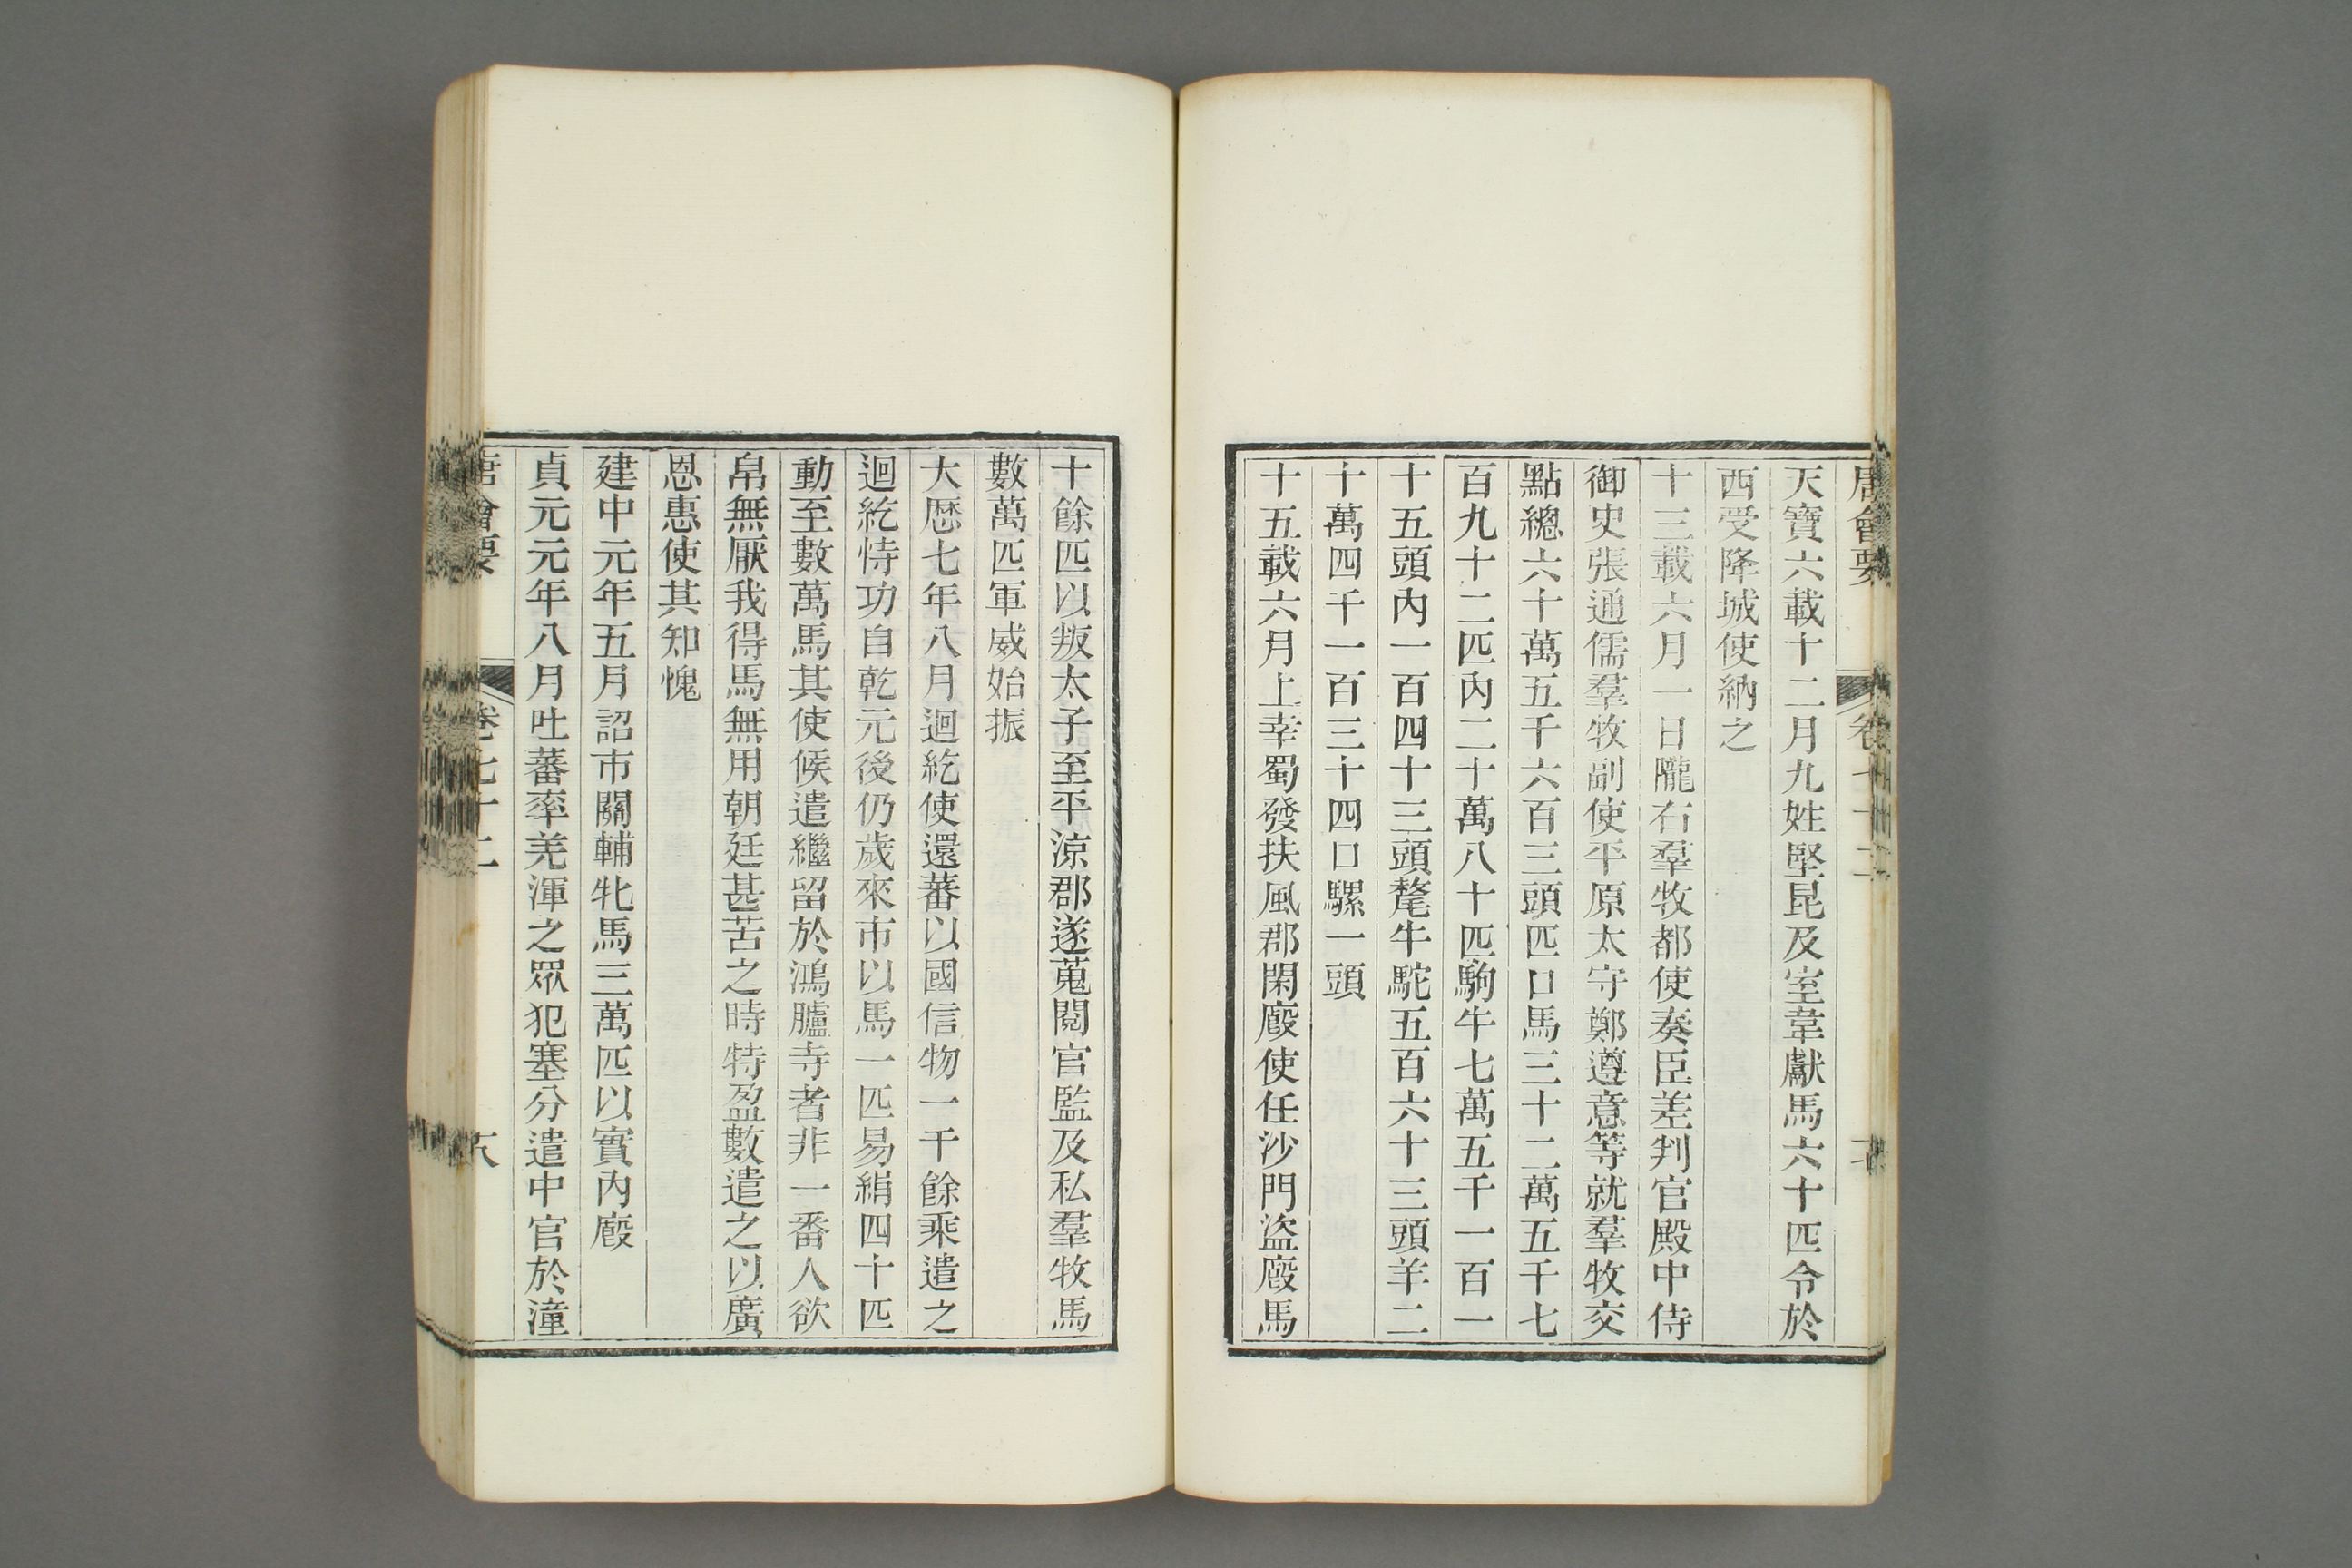 唐會要 卷七十二
天寶六載十二月九姓堅昆及室韋獻馬六十匹令於
西受降城使納之
十三載六月一日隴右羣牧都使奏臣差判官殿中侍
御史張通儒羣牧副使平原太守鄭遵意等就羣牧交
點總六十萬五千六百三頭匹口馬三十二萬五千七
百九十二匹內二十萬八十匹駒牛七萬五千一百一
十五頭內一百四十三頭氂牛駝五百六十三頭羊二
十萬四千一百三十四口騾一頭
十五載六月上幸蜀發扶風郡閑廄使任沙門盜廄馬
十餘匹以叛太子至平涼郡遂蒐閱官監及私羣牧馬
數萬匹軍威始振
大厯七年八月迴紇使還蕃以國信物一千餘乘遣之
迴紇恃功自乾元後仍歲來市以馬一匹易絹四十匹
動至數萬馬其使候遣繼留於鴻臚寺者非一番人欲
帛無厭我得馬無用朝廷甚苦之時特盈數遣之以廣
恩惠使其知愧
建中元年五月詔市關輔牝馬三萬匹以實內廄
貞元元年八月吐蕃率羌渾之眾犯塞分遣中官於潼
唐會要 卷七十二